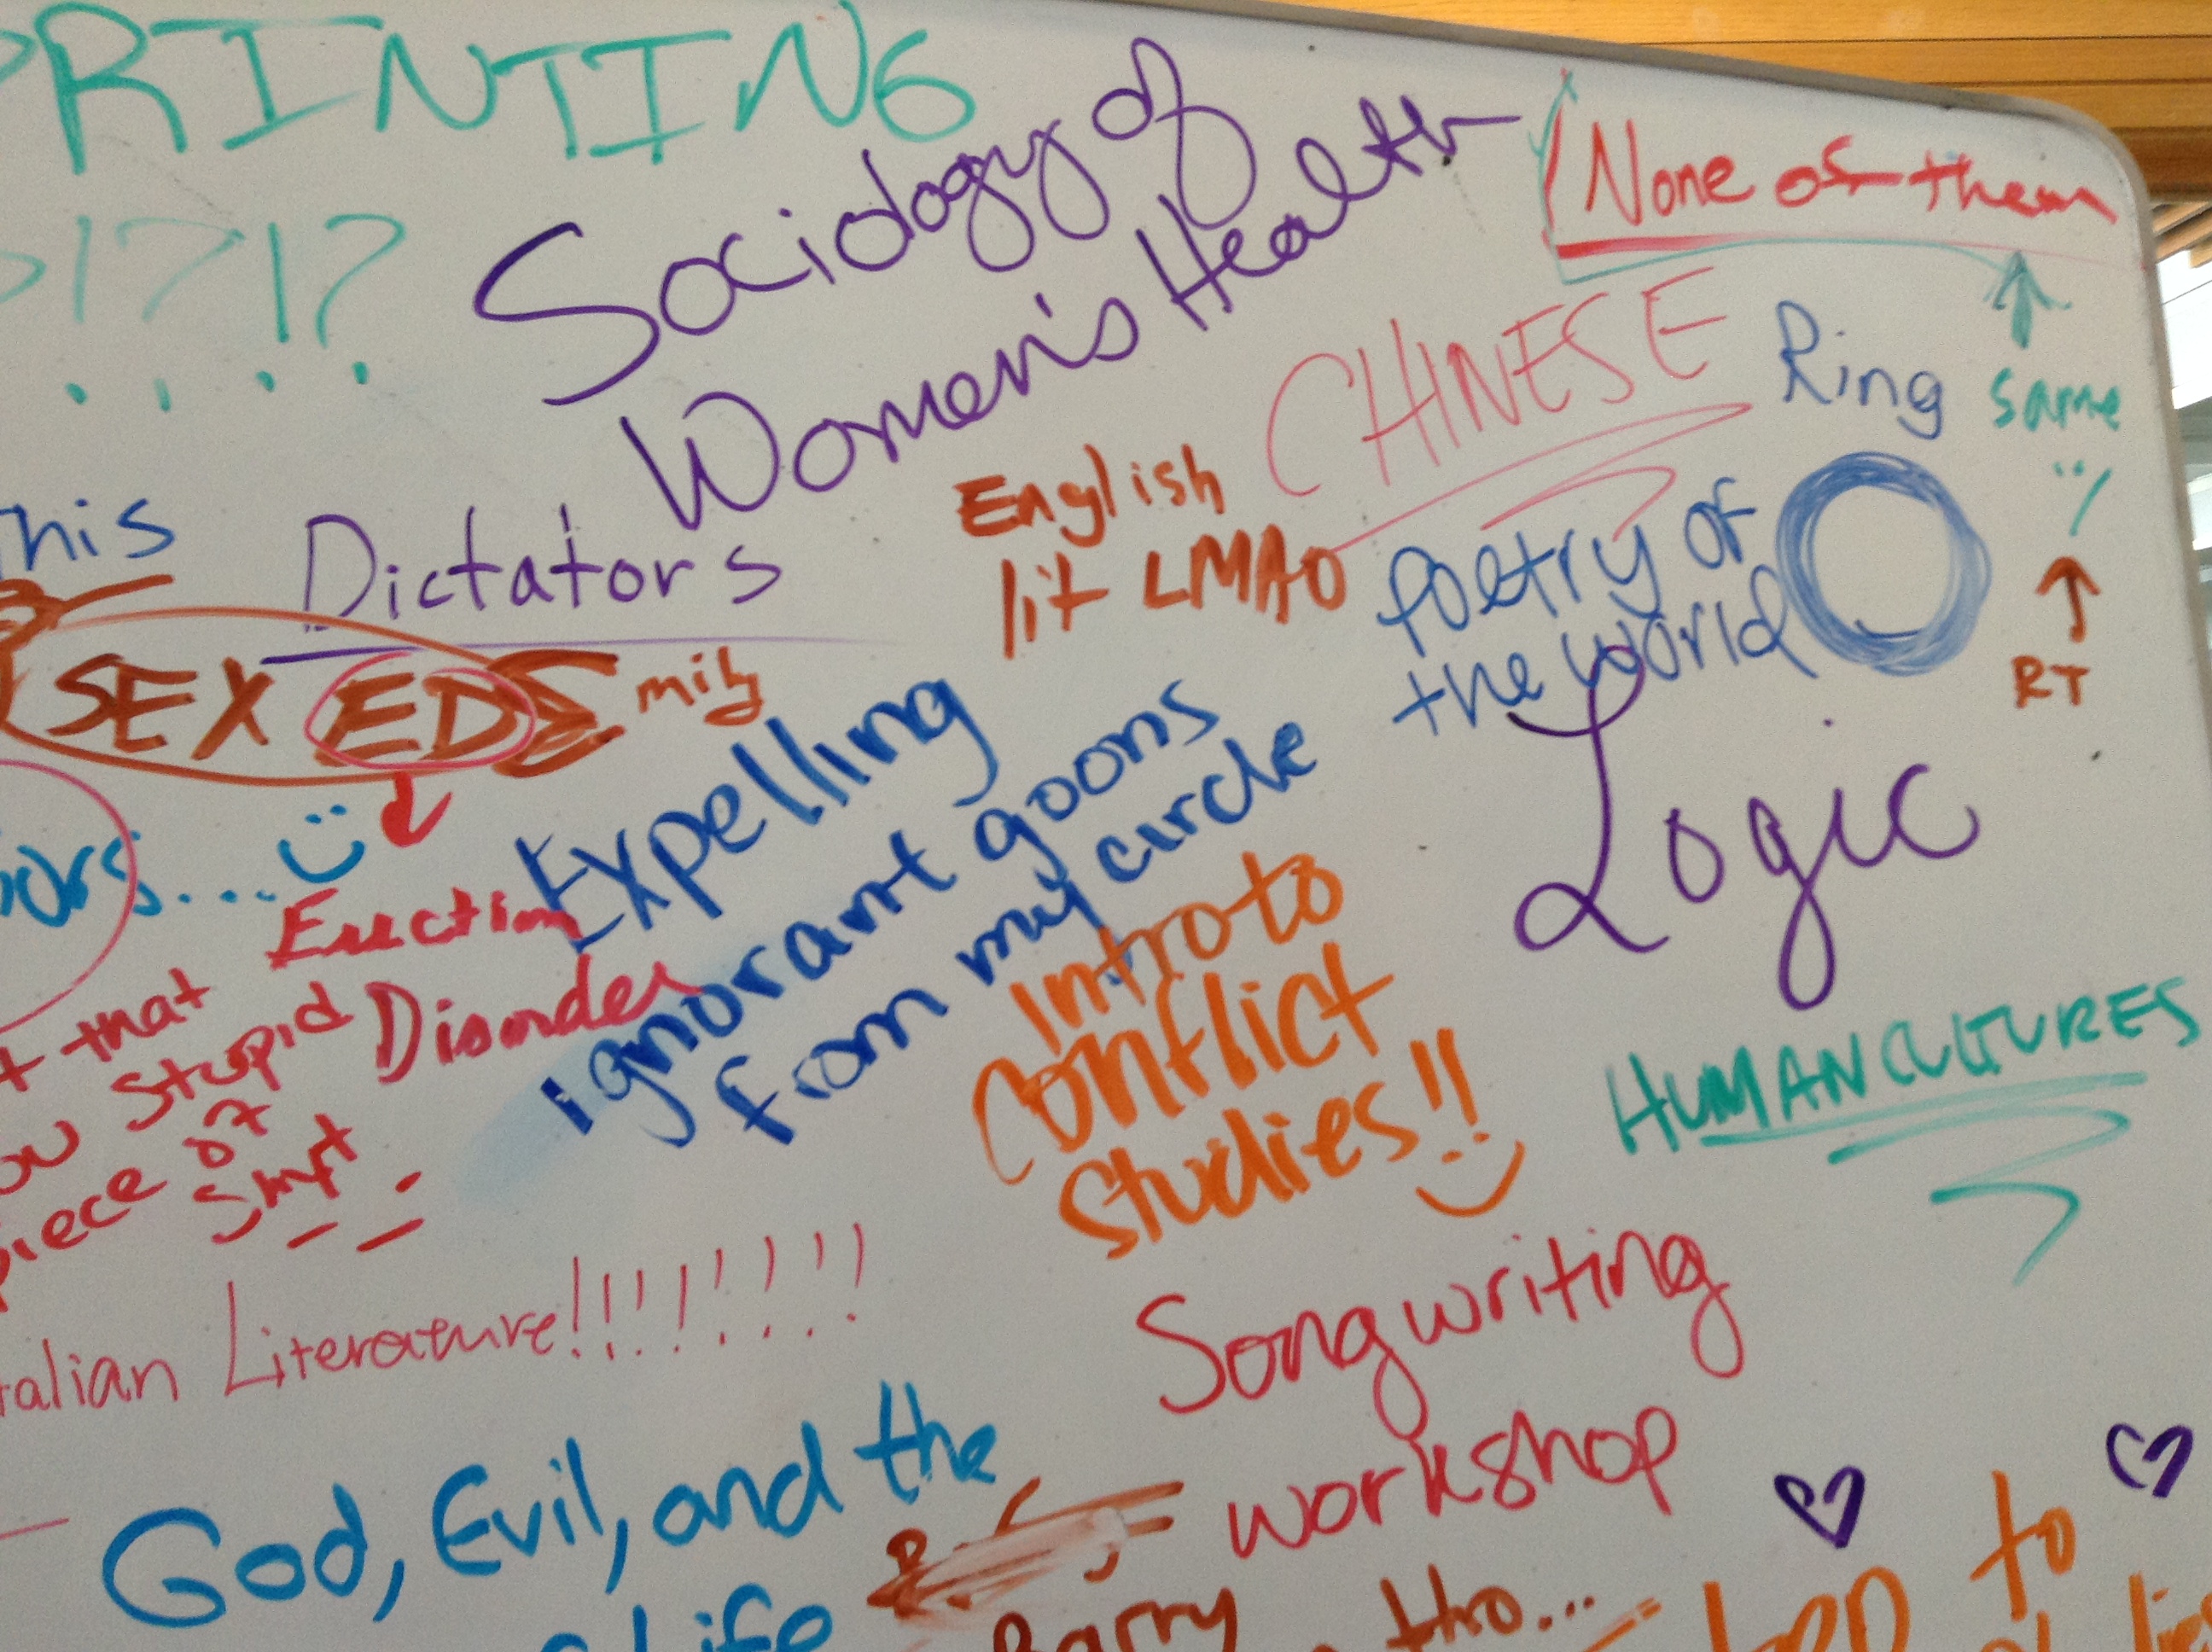 PRINTING
!?!?
Sociology of
Women's Health
None of them
CHINESE
Ring
Same
RT
English
lit LMAO
Poetry of
the World
this
Dictators
SEX EDS
Expelling
ignorant goons
from my circle
Logic
Disorder
that
Stupid
piece of
Intro to
Conflict
Studies!!
HUMAN CULTURES
Literature!!!!!!!!
Songwriting
workshop
God, Evil, and the
Life
Barry
tho...
to